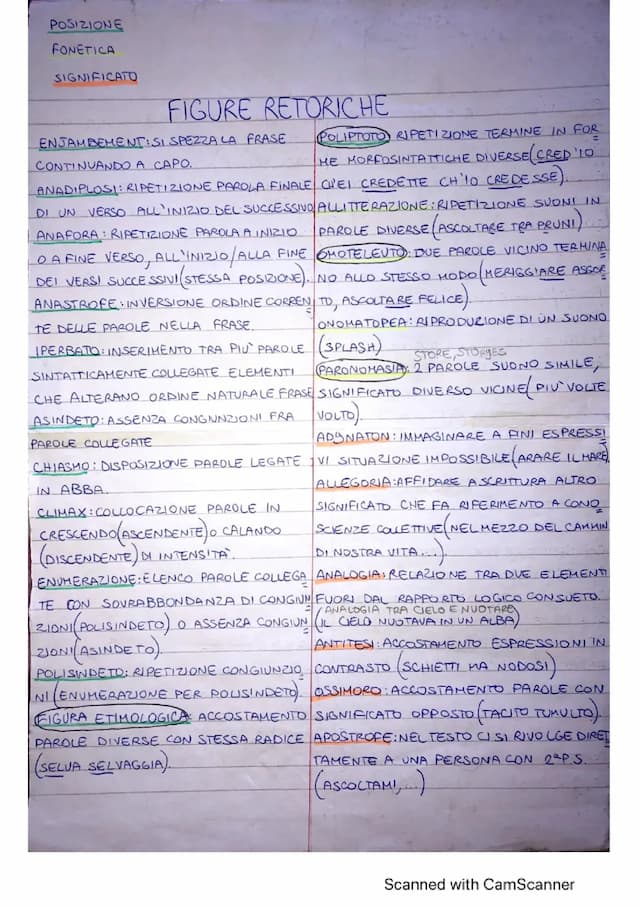 POSIZIONE
FONETICA
SIGNIFICATO
FIGURE RETORICHE
ENJAMBEMENT: SI SPEZZA LA FRASE
CONTINUANDO A CAPO.
ANADIPLOSI: RIPETIZIONE PAROLA FINALE
DI UN VERSO ALL'INIZIO DEL SUCCESSIVO
ANAFORA: RIPETIZIONE PAROLA A INIZIO
O A FINE VERSO, ALL'INIZIO/ALLA FINE
DEI VERSI SUCCESSIVI (STESSA POSIZIONE).
ANASTROFE: INVERSIONE ORDINE CORREN
TE DELLE PAROLE NELLA FRASE.
IPERBATO: INSERIMENTO TRA PIU' PAROLE
SINTATTICAMENTE COLLEGATE ELEMENTI
CHE ALTERANO ORDINE NATURALE FRASE
ASINDETO: ASSENZA CONGIUNZIONI FRA
PAROLE COLLEGATE
CHIASMO: DISPOSIZIONE PAROLE LEGATE
IN ABBA.
CLIMAX: COLLOCAZIONE PAROLE IN
CRESCENDO (ASCENDENTE) O CALANDO
(DISCENDENTE) DI INTENSITA'.
ENUMERAZIONE: ELENCO PAROLE COLLEGA
TE CON SOVRABBONDANZA DI CONGIUN
ZIONI (POLISINDETO) O ASSENZA CONGIUN
ZIONI (ASINDETO).
POLISINDETO: RIPETIZIONE CONGIUNZIO
NI (ENUMERAZIONE PER POLISINDETO).
FIGURA ETIMOLOGICA: ACCOSTAMENTO
PAROLE DIVERSE CON STESSA RADICE
(SELVA SELVAGGIA).
POLIPTOTO: RIPETIZIONE TERMINE IN FOR
ME MORFOSINTATTICHE DIVERSE (CRED'IO
CH'EI CREDETTE CH'IO CREDESSE).
ALLITTERAZIONE: RIPETIZIONE SUONI IN
PAROLE DIVERSE (ASCOLTARE TRA PRUNI)
OMOTELEUTO: DUE PAROLE VICINO TERMINA
NO ALLO STESSO MODO (MERIGGIARE ASSOR
TO, ASCOLTARE FELICE).
ONOMATOPEA: RIPRODUZIONE DI UN SUONO
(SPLASH)
STORE, STORIES
PARONOMASIA: 2 PAROLE SUONO SIMILE,
SIGNIFICATO DIVERSO VICINE (PIU' VOLTE
VOLTO).
ADYNATON: IMMAGINARE A FINI ESPRESSI
VI SITUAZIONE IMPOSSIBILE (ARARE IL MARE)
ALLEGORIA: AFFIDARE A SCRITTURA ALTRO
SIGNIFICATO CHE FA RIFERIMENTO A CONO
SCIENZE COLLETTIVE (NEL MEZZO DEL CAMMIN
DI NOSTRA VITA...).
ANALOGIA: RELAZIONE TRA DUE ELEMENTI
FUORI DAL RAPPORTO LOGICO CONSUETO.
(ANALOGIA TRA CIELO E NUOTARE)
(IL CIELO NUOTAVA IN UN ALBA)
ANTITESI: ACCOSTAMENTO ESPRESSIONI IN
CONTRASTO (SCHIETTI MA NODOSI)
OSSIMORO: ACCOSTAMENTO PAROLE CON
SIGNIFICATO OPPOSTO (TACITO TUMULTO).
APOSTROFE: NEL TESTO CI SI RIVOLGE DIRET
TAMENTE A UNA PERSONA CON 2ª P.S.
(ASCOLTAMI,...)
Scanned with CamScanner